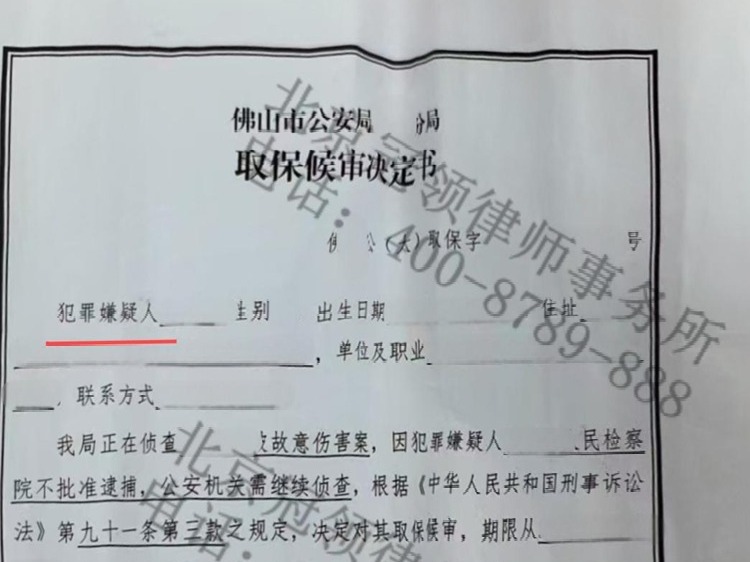 佛山市公安局 分局
取保候审决定书
公（大）取保字 号
犯罪嫌疑人 性别 出生日期 住址
，单位及职业
，联系方式
我局正在侦查 故意伤害案，因犯罪嫌疑人 民检察
院不批准逮捕，公安机关需继续侦查，根据《中华人民共和国刑事诉讼
法》第九十一条第三款之规定，决定对其取保候审，期限从
北京冠领律师事务所
电话：400-8789-888
北京冠领律
电话：